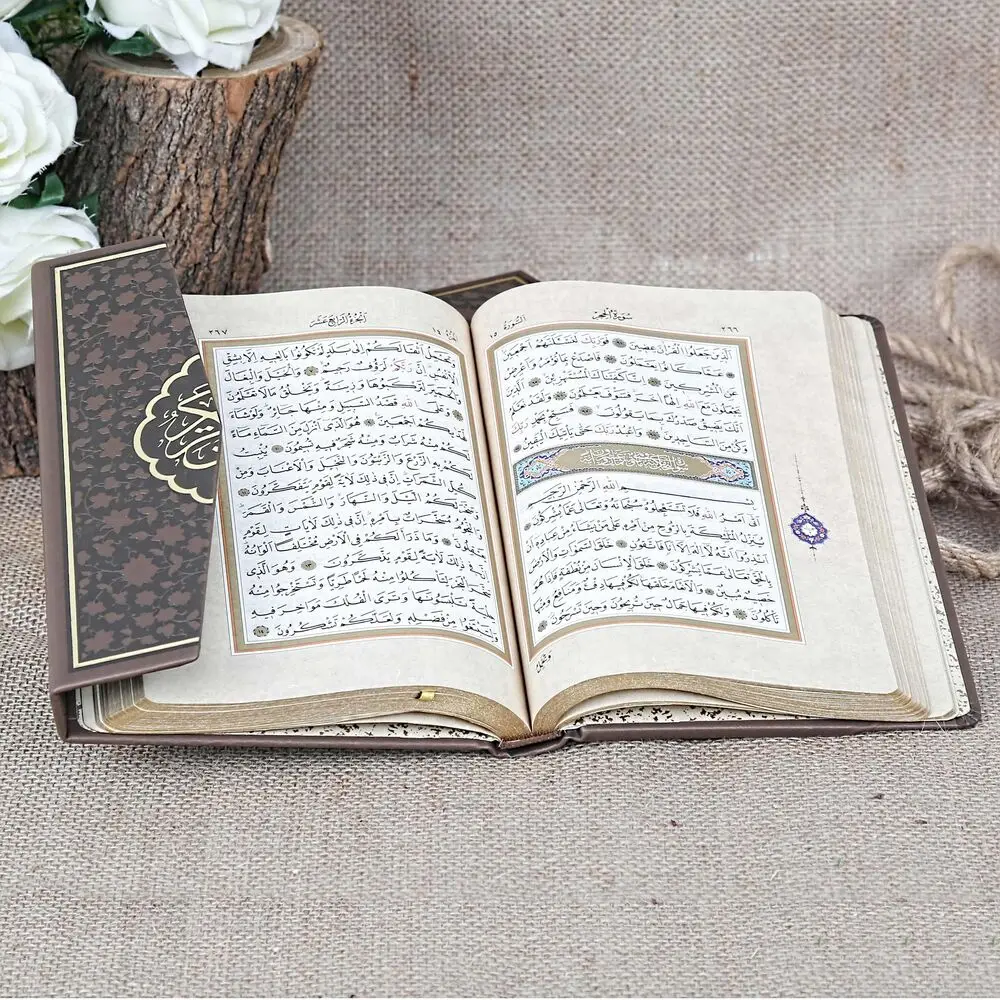 ٢٦٦ سُورَةُ الْحِجْرِ السُّورَةُ ١٥
الَّذِينَ جَعَلُوا الْقُرْاٰنَ عِضِينَ فَوَرَبِّكَ لَنَسْـَٔلَنَّهُمْ اَجْمَعِينَ
عَمَّا كَانُوا يَعْمَلُونَ فَاصْدَعْ بِمَا تُؤْمَرُ وَاَعْرِضْ
عَنِ الْمُشْرِكِينَ اِنَّا كَفَيْنَاكَ الْمُسْتَهْزِئِينَ الَّذِينَ
يَجْعَلُونَ مَعَ اللّٰهِ اِلٰهًا اٰخَرَ فَسَوْفَ يَعْلَمُونَ وَلَقَدْ نَعْلَمُ
اَنَّكَ يَضِيقُ صَدْرُكَ بِمَا يَقُولُونَ فَسَبِّحْ بِحَمْدِ رَبِّكَ
وَكُنْ مِنَ السَّاجِدِينَ وَاعْبُدْ رَبَّكَ حَتّٰى يَأْتِيَكَ الْيَقِينُ
بِسْمِ اللّٰهِ الرَّحْمٰنِ الرَّحِيمِ
اَتٰى اَمْرُ اللّٰهِ فَلَا تَسْتَعْجِلُوهُ سُبْحَانَهُ وَتَعَالٰى عَمَّا يُشْرِكُونَ
يُنَزِّلُ الْمَلٰئِكَةَ بِالرُّوحِ مِنْ اَمْرِهِ عَلٰى مَنْ يَشَاءُ مِنْ عِبَادِهِ اَنْ
اَنْذِرُوا اَنَّهُ لَا اِلٰهَ اِلَّا اَنَا فَاتَّقُونِ خَلَقَ السَّمٰوَاتِ وَالْاَرْضَ
بِالْحَقِّ تَعَالٰى عَمَّا يُشْرِكُونَ خَلَقَ الْاِنْسَانَ مِنْ نُطْفَةٍ فَاِذَا هُوَ
خَصِيمٌ مُبِينٌ وَالْاَنْعَامَ خَلَقَهَا لَكُمْ فِيهَا دِفْءٌ وَمَنَافِعُ وَمِنْهَا
تَأْكُلُونَ وَلَكُمْ فِيهَا جَمَالٌ حِينَ تُرِيحُونَ وَحِينَ تَسْرَحُونَ
وَتَحْمِلُ
الْجُزْءُ ١٤ اَلْجُزْءُ الرَّابِعَ عَشَرَ ٢٦٧
وَتَحْمِلُ اَثْقَالَكُمْ اِلٰى بَلَدٍ لَمْ تَكُونُوا بَالِغِيهِ اِلَّا بِشِقِّ
الْاَنْفُسِ اِنَّ رَبَّكُمْ لَرَؤُفٌ رَحِيمٌ وَالْخَيْلَ وَالْبِغَالَ
وَالْحَمِيرَ لِتَرْكَبُوهَا وَزِينَةً وَيَخْلُقُ مَا لَا تَعْلَمُونَ
وَعَلَى اللّٰهِ قَصْدُ السَّبِيلِ وَمِنْهَا جَائِرٌ وَلَوْ شَاءَ
لَهَدٰيكُمْ اَجْمَعِينَ هُوَ الَّذِى اَنْزَلَ مِنَ السَّمَاءِ مَاءً
لَكُمْ مِنْهُ شَرَابٌ وَمِنْهُ شَجَرٌ فِيهِ تُسِيمُونَ يُنْبِتُ
لَكُمْ بِهِ الزَّرْعَ وَالزَّيْتُونَ وَالنَّخِيلَ وَالْاَعْنَابَ وَمِنْ
كُلِّ الثَّمَرَاتِ اِنَّ فِى ذٰلِكَ لَاٰيَةً لِقَوْمٍ يَتَفَكَّرُونَ
وَسَخَّرَ لَكُمُ الَّيْلَ وَالنَّهَارَ وَالشَّمْسَ وَالْقَمَرَ
وَالنُّجُومُ مُسَخَّرَاتٌ بِاَمْرِهِ اِنَّ فِى ذٰلِكَ لَاٰيَاتٍ لِقَوْمٍ
يَعْقِلُونَ وَمَا ذَرَاَ لَكُمْ فِى الْاَرْضِ مُخْتَلِفًا اَلْوَانُهُ
اِنَّ فِى ذٰلِكَ لَاٰيَةً لِقَوْمٍ يَذَّكَّرُونَ وَهُوَ الَّذِى
سَخَّرَ الْبَحْرَ لِتَأْكُلُوا مِنْهُ لَحْمًا طَرِيًّا وَتَسْتَخْرِجُوا مِنْهُ
حِلْيَةً تَلْبَسُونَهَا وَتَرَى الْفُلْكَ مَوَاخِرَ فِيهِ
وَلِتَبْتَغُوا مِنْ فَضْلِهِ وَلَعَلَّكُمْ تَشْكُرُونَ